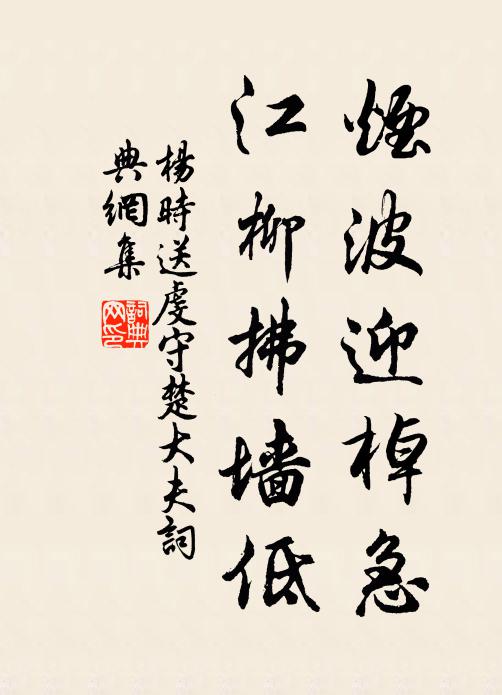 煙波迎棹急
江柳拂墙低
楊時送虔守楚大夫詞
典網集
詞典
网印